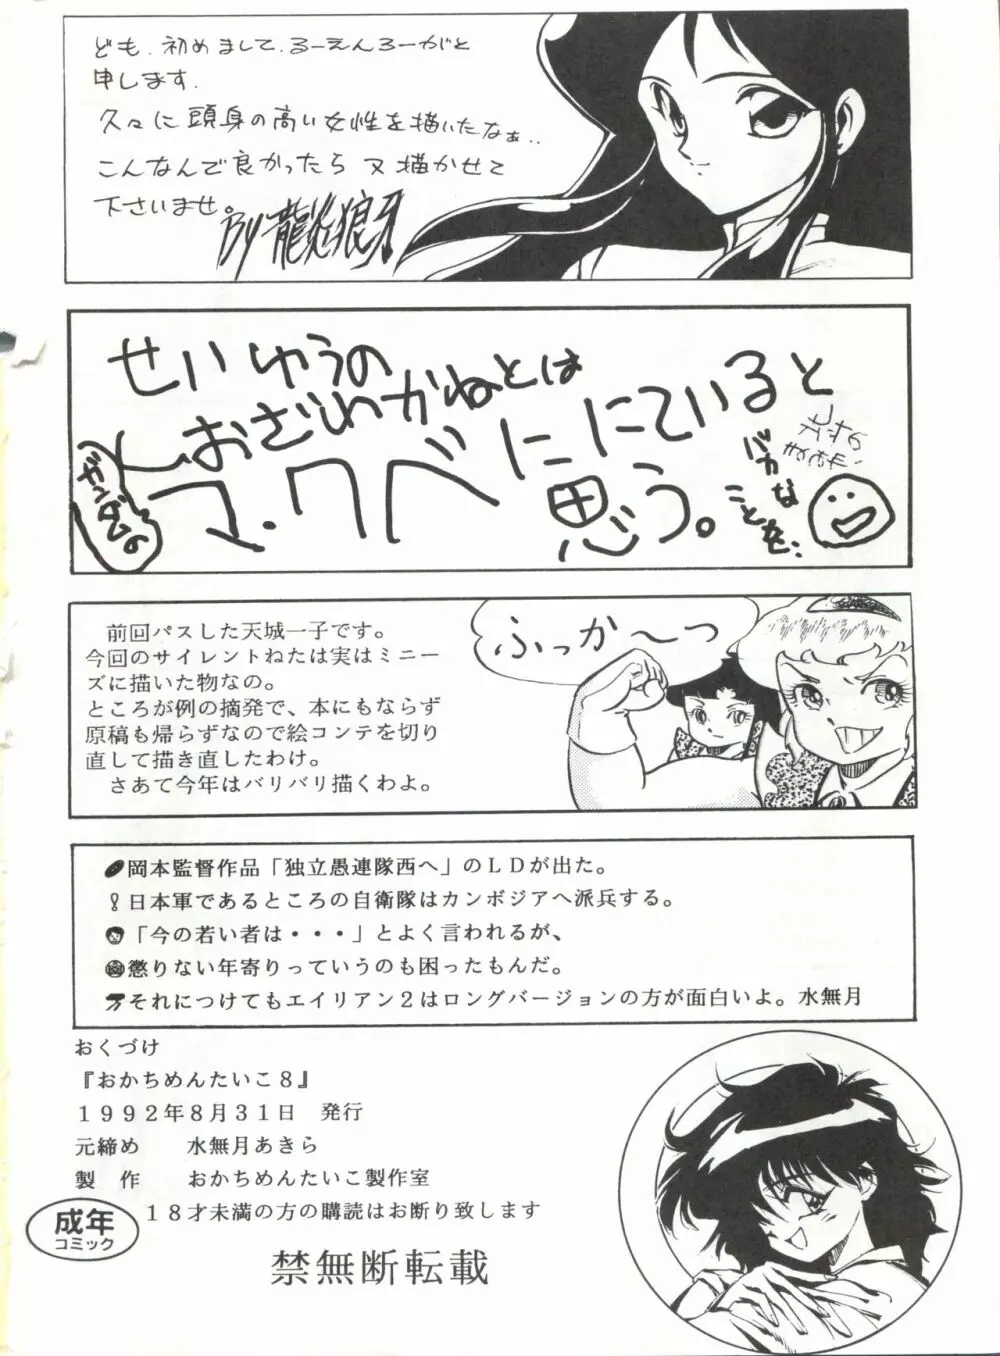 ども.初めまして.るーえんろーがと
申します.
久々に頭身の高い女性を描いたなぁ..
こんなんで良かったら又描かせて
下さいませ。
By 龍炎狼牙
せいゆうの
おざわかねとは
ガンダムの
マ・クベににていると
思う。
バカな
ことを..
前回パスした天城一子です。
今回のサイレントねたは実はミニー
ズに描いた物なの。
ところが例の摘発で、本にもならず
原稿も帰らずなので絵コンテを切り
直して描き直したわけ。
さあて今年はバリバリ描くわよ。
ふっか〜つ
岡本監督作品「独立愚連隊西へ」のＬＤが出た。
日本軍であるところの自衛隊はカンボジアへ派兵する。
「今の若い者は・・・」とよく言われるが、
懲りない年寄りっていうのも困ったもんだ。
それにつけてもエイリアン２はロングバージョンの方が面白いよ。水無月
おくづけ
『おかちめんたいこ８』
１９９２年８月３１日　発行
元締め　　水無月あきら
製　作　　おかちめんたいこ製作室
１８才未満の方の購読はお断り致します
成年
コミック
禁無断転載